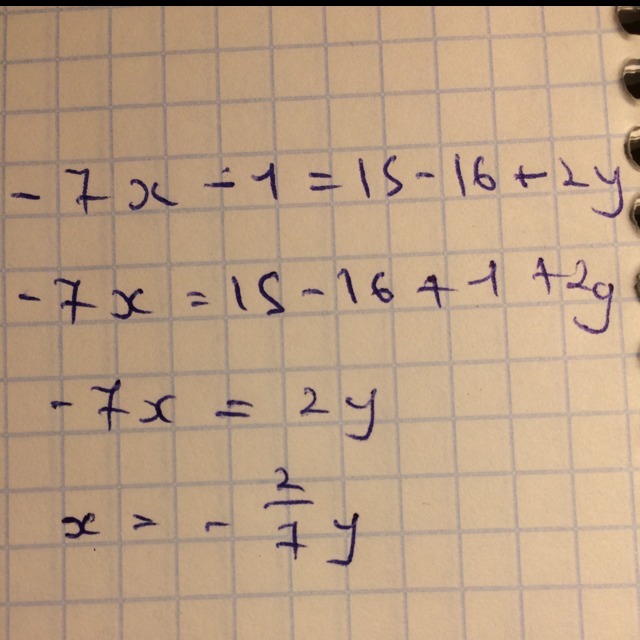 -7x - 1 = 15 - 16 + 2y
-7x = 15 - 16 + 1 + 2y
-7x = 2y
x = - 2/7 y